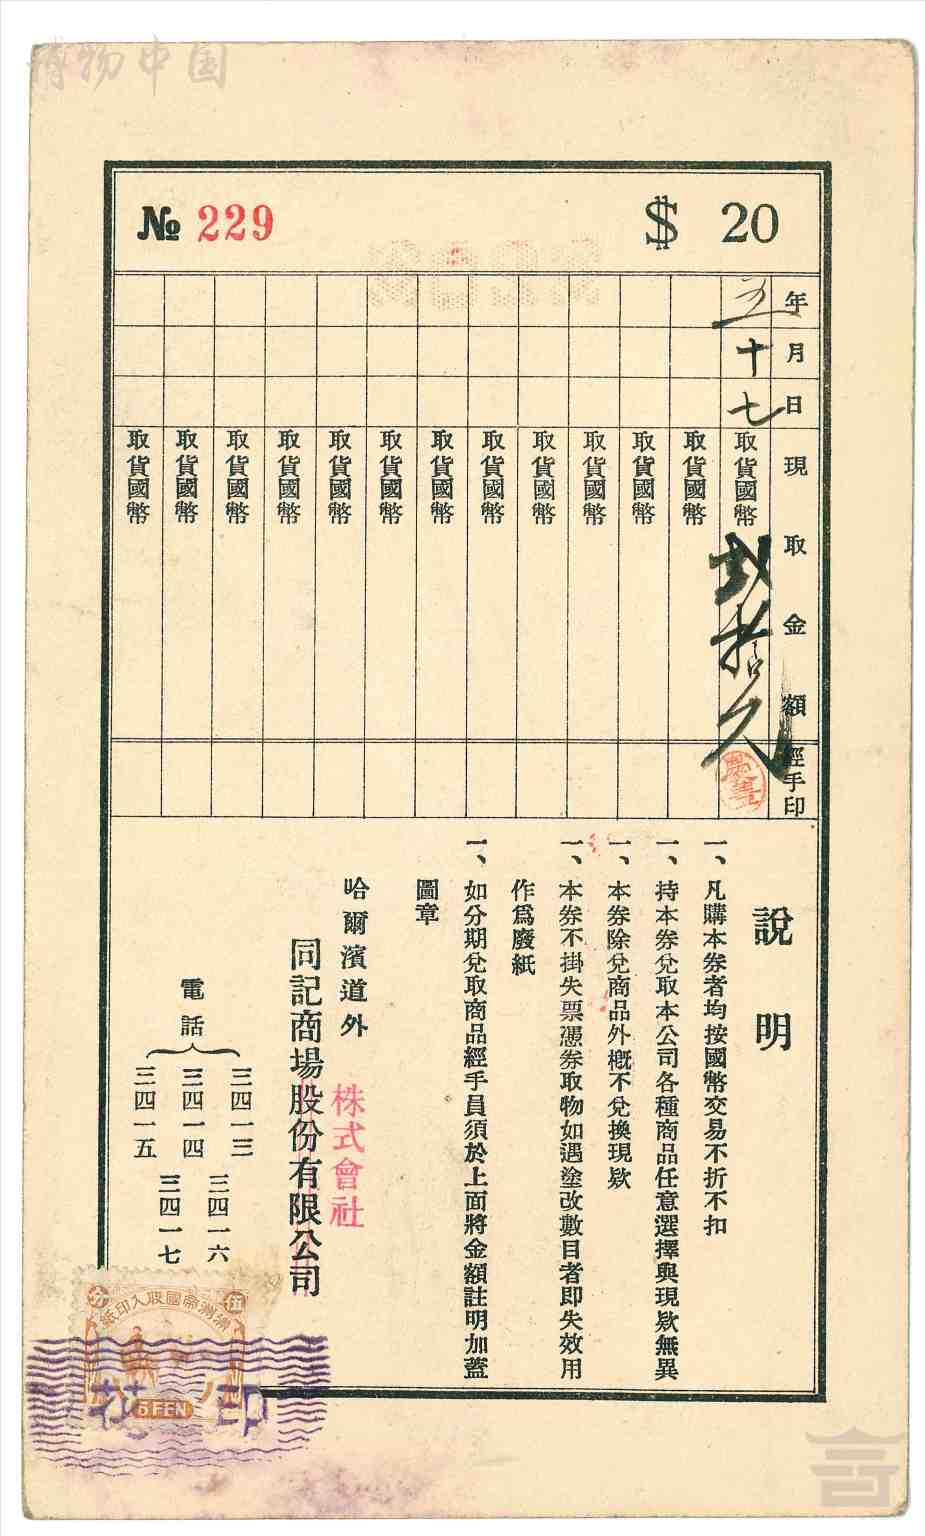 博物中国
№ 229
$ 20
年 月 日 現取金額 經手印
五 十 七 取貨國幣 貳拾元
取貨國幣
取貨國幣
取貨國幣
取貨國幣
取貨國幣
取貨國幣
取貨國幣
取貨國幣
取貨國幣
取貨國幣
取貨國幣
取貨國幣
說明
一、凡購本券者均按國幣交易不折不扣
一、持本券兌取本公司各種商品任意選擇與現欵無異
一、本券除兌商品外槪不兌換現欵
一、本券不掛失票憑券取物如遇塗改數目者即失效用
作爲廢紙
一、如分期兌取商品經手員須於上面將金額註明加蓋
圖章
哈爾濱道外
株式會社
同記商場股份有限公司
電話
三四一三
三四一六
三四一四
三四一七
三四一五
伍 分
滿洲帝國收入印紙
5 FEN
印